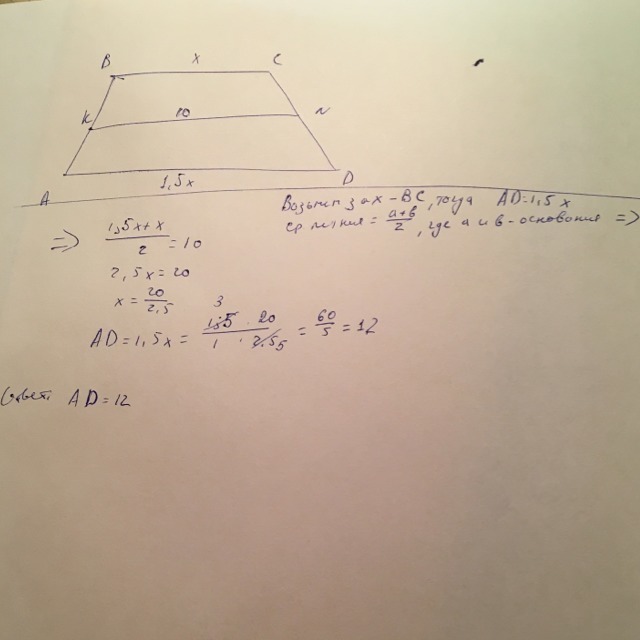 B x C
K 10 N
A 1,5x D
Возьмем за x – BC, тогда AD=1,5x
ср линия = a+b/2, где a и b - основания =>
=> 1,5x+x/2 = 10
2,5x = 20
x = 20/2,5
3
AD = 1,5x = 1,5 · 20/1 · 2,5 5 = 60/5 = 12
Ответ: AD = 12